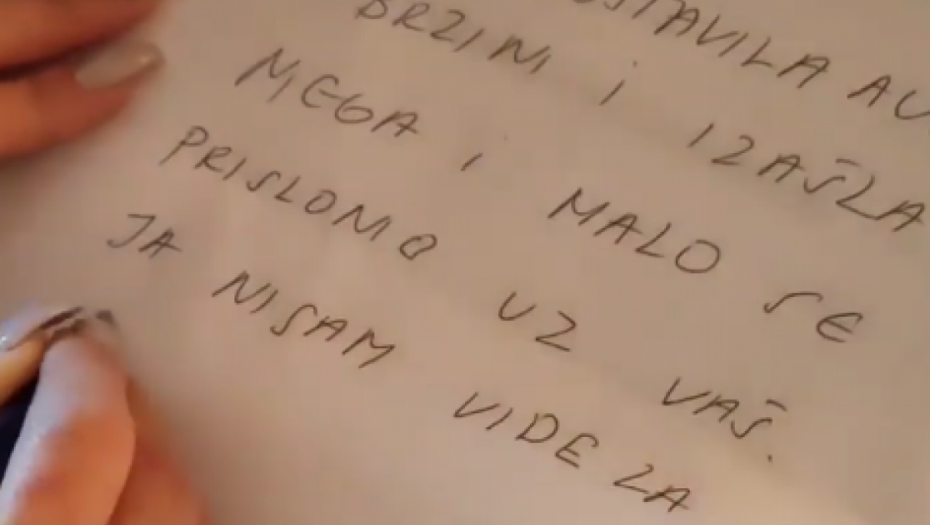 STAVILA AU
BRZINI i IZAŠLA
NJEGA I MALO SE
PRISLONIO UZ VAŠ.
JA NISAM VIDELA